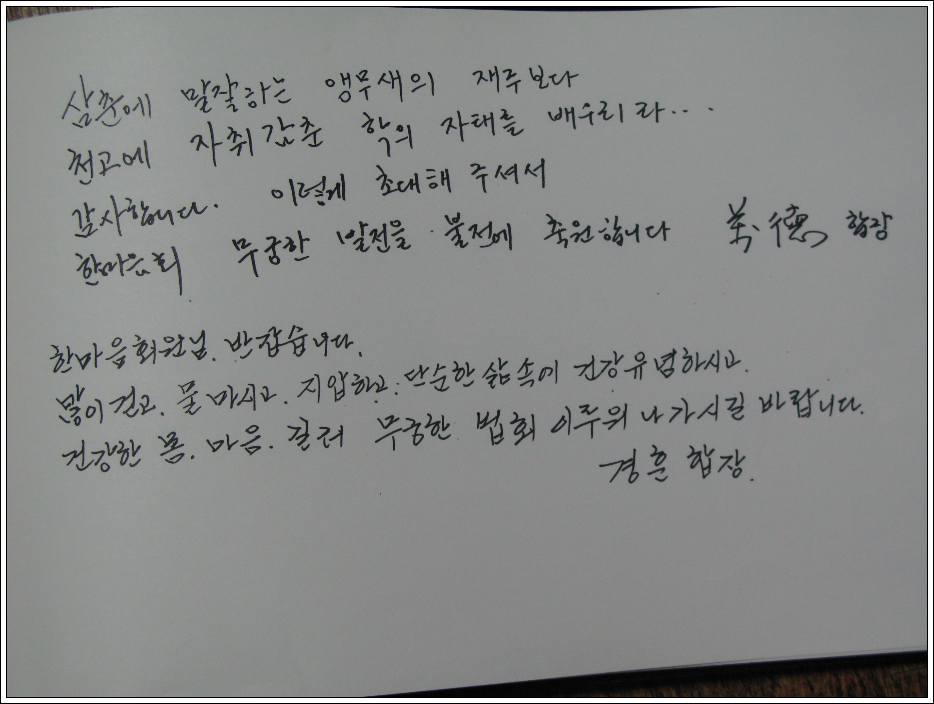 삼춘에 말잘하는 앵무새의 재주보다
천고에 자취감춘 학의 자태를 배우리라...
감사합니다. 이렇게 초대해 주셔서
한마음회 무궁한 발전을 불전에 축원합니다 萬德 합장
한마음회원님. 반갑습니다.
많이 걷고. 물 마시고. 지압하고. 단순한 삶속에 건강유념하시고.
건강한 몸. 마음. 길러 무궁한 법회 이루워 나가시길 바랍니다.
경훈 합장.